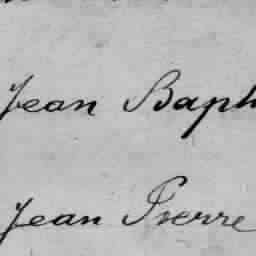 Jean Baph
Jean Pierre